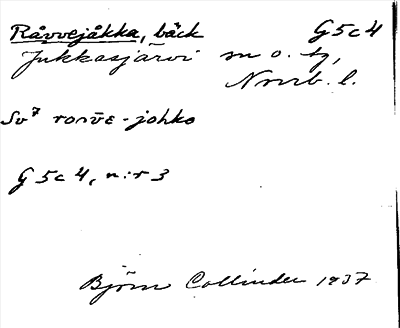 Råvvejåkka, bäck G5c4
Jukkasjärvi sn o. tg,
Nrrb. l.
Sv⁷ rovve-johko
G5c4, n:r 3
Björn Collinder 1937